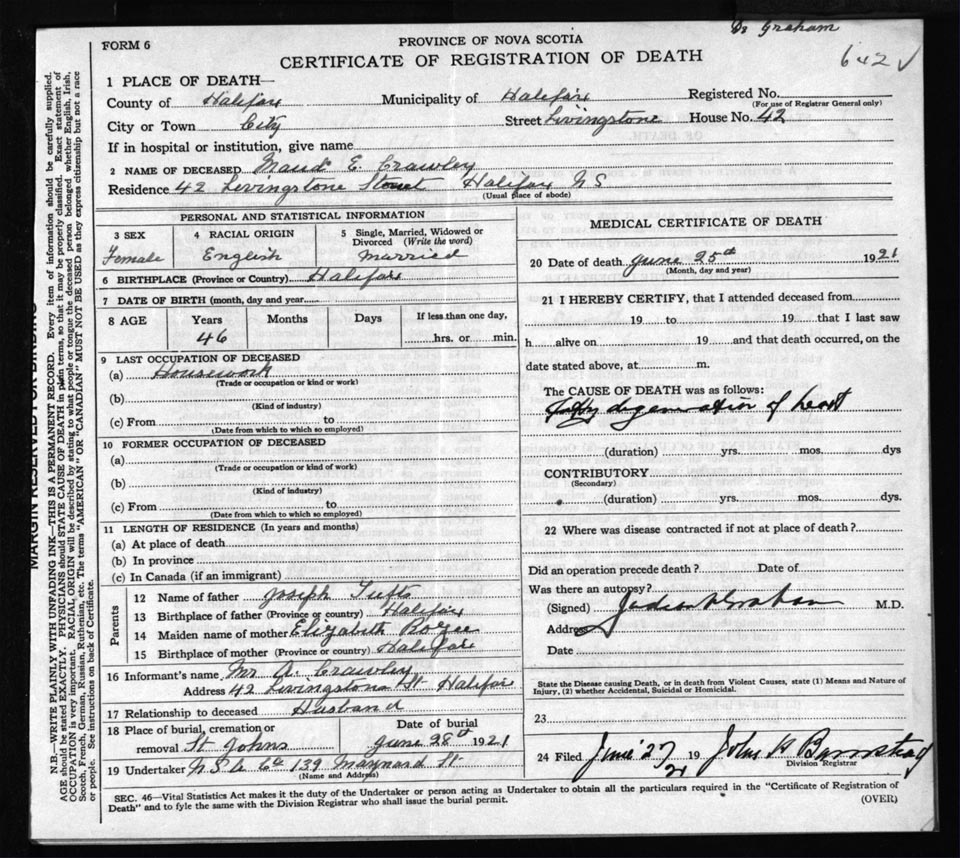 Dr Graham
642 √
FORM 6
PROVINCE OF NOVA SCOTIA
CERTIFICATE OF REGISTRATION OF DEATH
1 PLACE OF DEATH—
County of Halifax Municipality of Halifax Registered No.
(For use of Registrar General only)
City or Town City Street Livingstone House No. 42
If in hospital or institution, give name
2 NAME OF DECEASED Maud E. Crawley
Residence 42 Livingstone Street Halifax N S
(Usual place of abode)
PERSONAL AND STATISTICAL INFORMATION
3 SEX 4 RACIAL ORIGIN 5 Single, Married, Widowed or Divorced (Write the word)
Female English Married
6 BIRTHPLACE (Province or Country) Halifax
7 DATE OF BIRTH (month, day and year)
8 AGE Years Months Days If less than one day,
46 hrs. or min.
9 LAST OCCUPATION OF DECEASED
(a) Housework
(Trade or occupation or kind or work)
(b)
(Kind of industry)
(c) From to
(Date from which to which so employed)
10 FORMER OCCUPATION OF DECEASED
(a)
(Trade or occupation or kind or work)
(b)
(Kind of industry)
(c) From to
(Date from which to which so employed)
11 LENGTH OF RESIDENCE (In years and months)
(a) At place of death
(b) In province
(c) In Canada (if an immigrant)
Parents
12 Name of father Joseph Tufts
13 Birthplace of father (Province or country) Halifax
14 Maiden name of mother Elizabeth
15 Birthplace of mother (Province or country) Halifax
16 Informant's name Mr A. Crawley
Address 42 Livingstone St Halifax
17 Relationship to deceased Husband
18 Place of burial, cremation or Date of burial
removal St Johns June 28th 1921
19 Undertaker N S U Co 139 Maynard St
(Name and Address)
MEDICAL CERTIFICATE OF DEATH
20 Date of death June 25th 1921
(Month, day and year)
21 I HEREBY CERTIFY, that I attended deceased from
19 to 19 that I last saw
h alive on 19 and that death occurred, on the
date stated above, at m.
The CAUSE OF DEATH was as follows:
Fatty degeneration of heart
(duration) yrs. mos. dys
CONTRIBUTORY
(Secondary)
(duration) yrs. mos. dys.
22 Where was disease contracted if not at place of death?
Did an operation precede death? Date of
Was there an autopsy?
(Signed) M.D.
Address
Date
State the Disease causing Death, or in death from Violent Causes, state (1) Means and Nature of
Injury, (2) whether Accidental, Suicidal or Homicidal.
23
24 Filed June 27/21 19 John K Barnstead
Division Registrar
SEC. 46—Vital Statistics Act makes it the duty of the Undertaker or person acting as Undertaker to obtain all the particulars required in the "Certificate of Registration of
Death" and to fyle the same with the Division Registrar who shall issue the burial permit.
(OVER)
MARGIN RESERVED FOR BINDING
N.B.—WRITE PLAINLY WITH UNFADING INK—THIS IS A PERMANENT RECORD. Every item of information should be carefully supplied.
AGE should be stated EXACTLY. PHYSICIANS should STATE CAUSE OF DEATH in plain terms, so that it may be properly classified. Exact statement of
OCCUPATION is very important. RACIAL ORIGIN will be described by stating to what people or tongue the deceased person belonged, whether English, Irish,
Scotch, French, German, Russian, Ruthenian, etc. The terms "AMERICAN" OR "CANADIAN" MUST NOT BE USED as they express citizenship but not a race
or people. See instructions on back of Certificate.